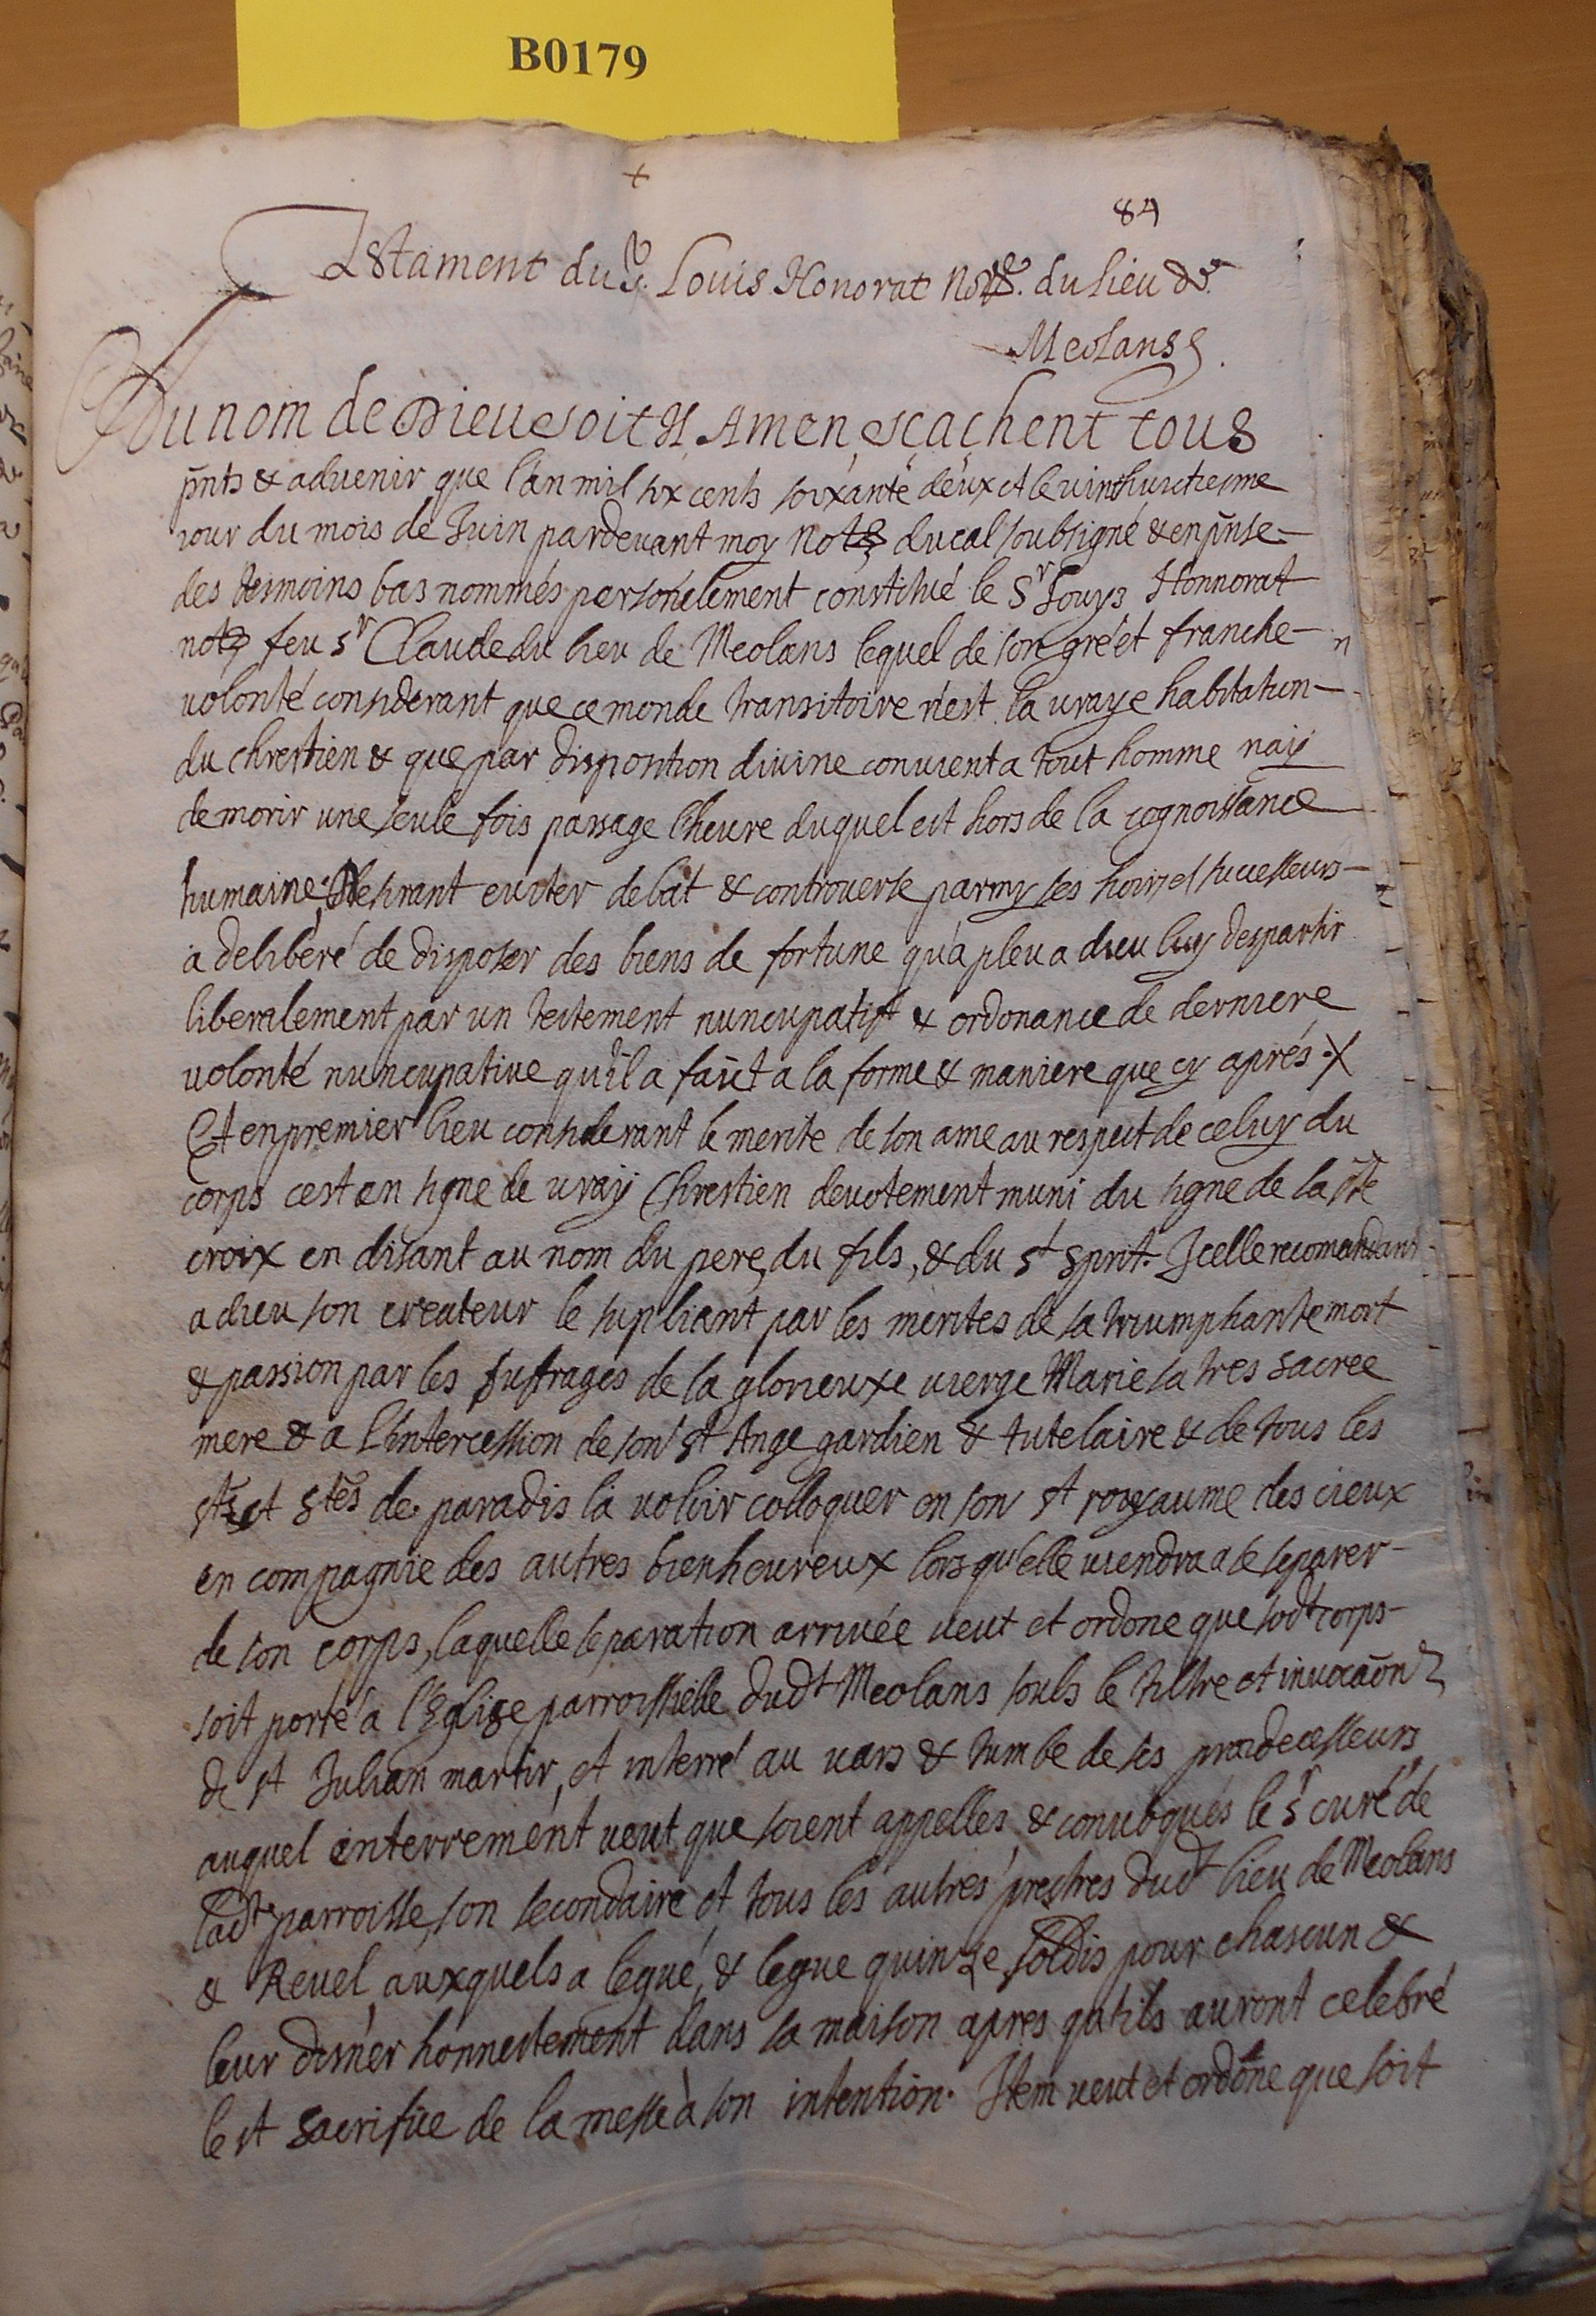 B0179
+
84
Testament du Sr. Louis Honorat Nore. du lieu de
Meolans
Au nom de Dieu soit il Amen, sçachent tous
pnts & advenir que l'an mil six cents soixante deux et le vinthuictiesme
jour du mois de Juin pardevant moy Notre ducal soubsigné & en pnse
des tesmoins bas nommés personelement constitué le Sr Louys Honnorat
notre feu Sr Claude du lieu de Meolans lequel de son gré et franche
volonté considerant que ce monde transitoire n'est la vraye habitation
du chrestien & que par disposition divine convient a tout homme nay
de morir une seule fois passage l'heure duquel est hors de la cognoissance
humaine, Desirant eviter debat & controverse parmy ses hoirs et successeurs
a deliberé de disposer des biens de fortune qu'a pleu a dieu luy despartir
liberalement par un testement nuncupatift & ordonance de derniere
volonté nuncupative qu'il a faict a la forme & maniere que cy aprés
Et en premier lieu considerant le merite de son ame au respect de celuy du
corps c'est en signe de vray Chrestien devotement muni du signe de la ste
croix en disant au nom du pere, du fils, & du st sprit. Icelle recomandant
a dieu son createur le supliant par les merites de sa triumphante mort
& passion par les sufrages de la glorieuxe vierge Marie sa tres sacree
mere & a l'intercession de son st Ange gardien & tutelaire & de tous les
sts et stes de paradis la voloir colloquer en son st royaume des cieux
en compagnie des autres bienheureux lorsqu'elle viendra a se separer
de son corps, laquelle separation arrivée veut et ordone que sodt corps
soit porté a l'Eglise parroissielle dudt Meolans soubs le tiltre et invocaon
de st Julian martir, et interré au vars & tumbe de ses praedecesseurs
auquel enterrement veut que soient appelles & convoqués le sr curé de
ladte parroisse, son secondaire et tous les autres prestres dudt lieu de Meolans
& Revel auxquels a legué & legue quinze soldis pour chascun &
leur disner honnestement dans sa maison apres qu'ils auront celebré
le st sacrifice de la messe à son intention. Item veut et ordone que soit